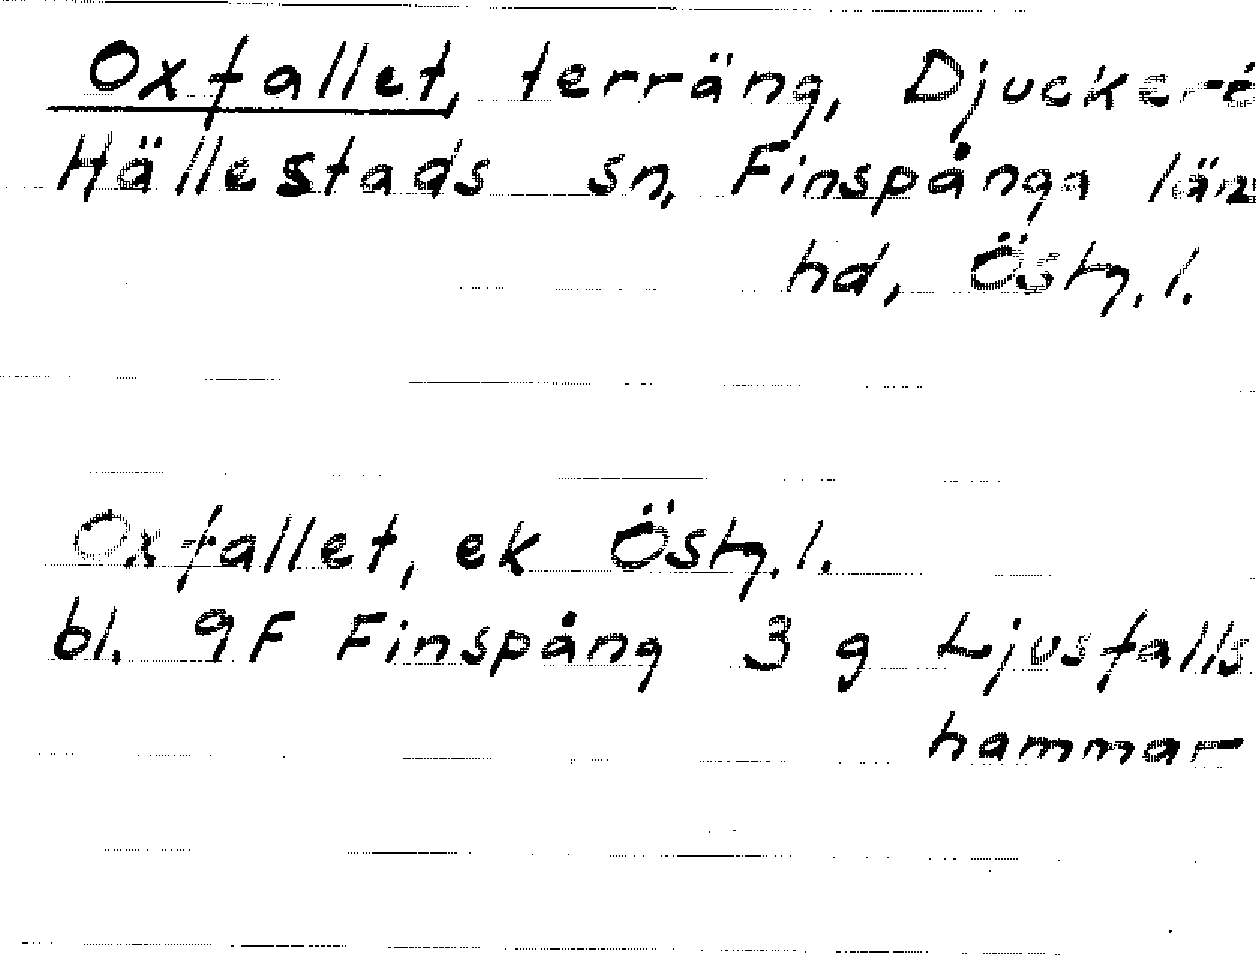 Oxfallet, terräng,
Hällestads sn, Finspånga län
hd, Östg. l.
Oxfallet, ek Östg. l.
bl. 9F Finspång 3 g Ljusfalls
hammar